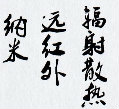 辐射散热
远红外
纳米